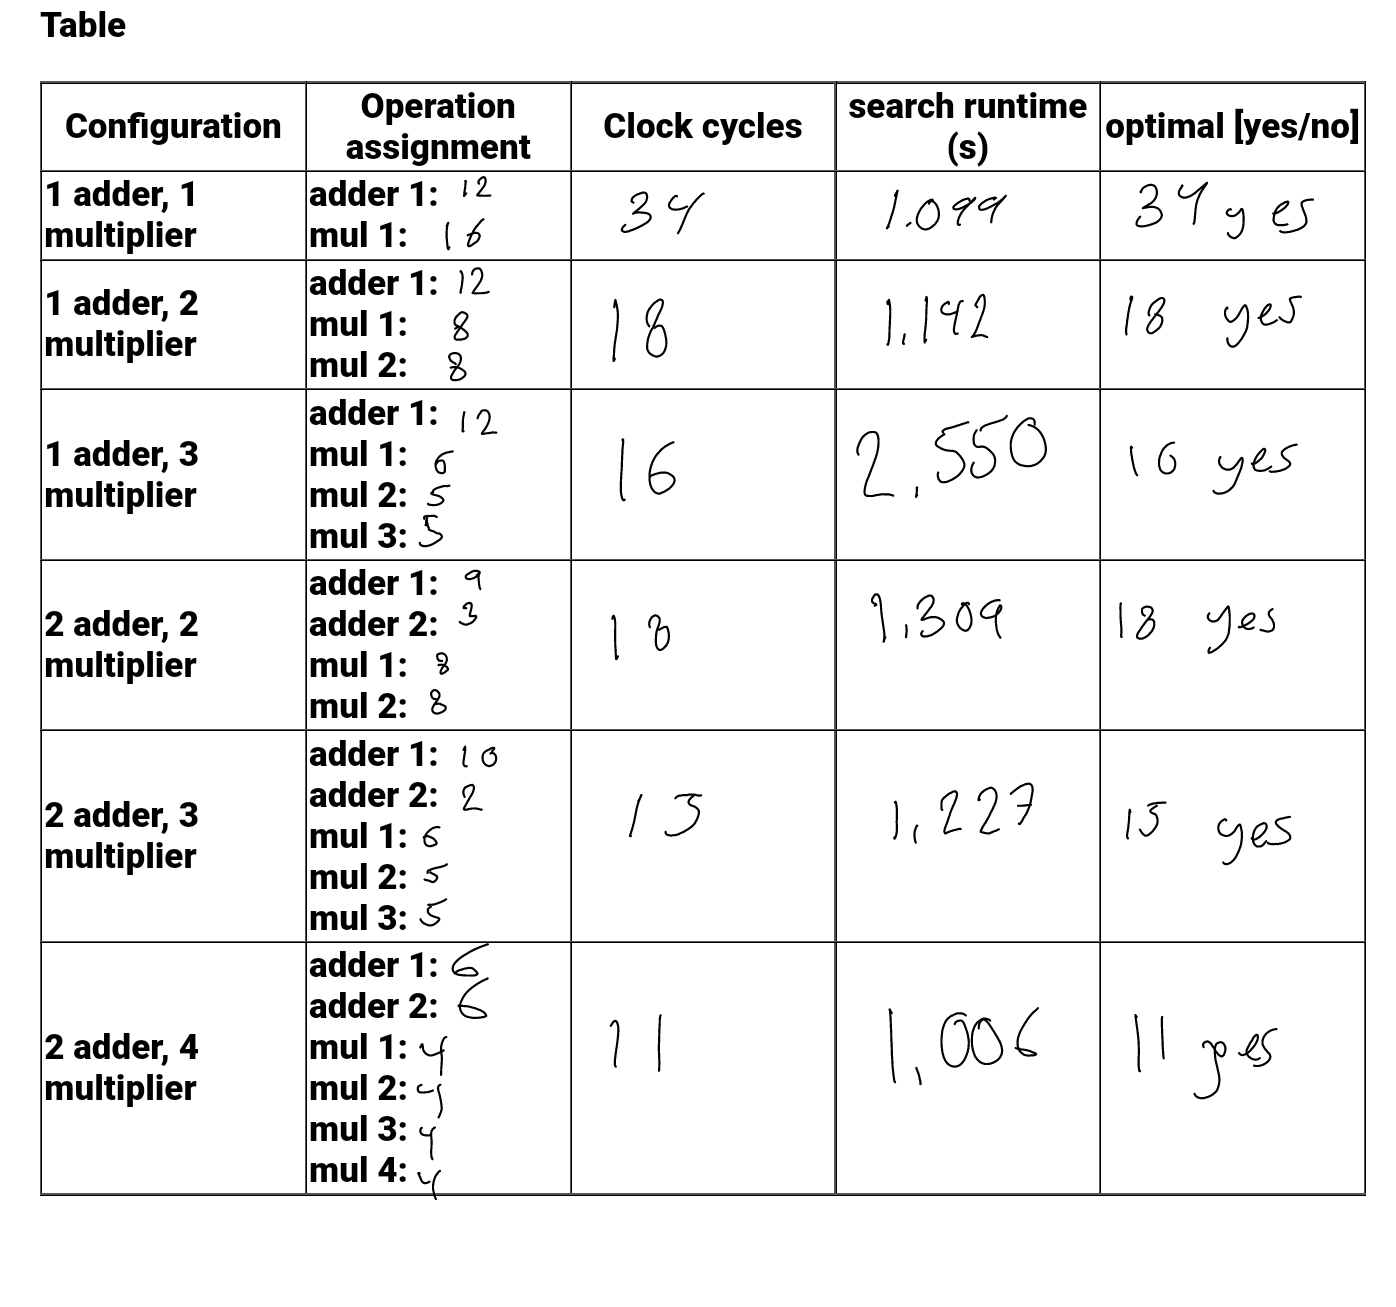 Table
Configuration
Operation
assignment
Clock cycles
search runtime
(s)
optimal [yes/no]
1 adder, 1
multiplier
adder 1: 12
mul 1: 16
34
1.099
34 yes
1 adder, 2
multiplier
adder 1: 12
mul 1: 8
mul 2: 8
18
1,142
18 yes
1 adder, 3
multiplier
adder 1: 12
mul 1: 6
mul 2: 5
mul 3: 5
16
2,550
16 yes
2 adder, 2
multiplier
adder 1: 9
adder 2: 3
mul 1: 8
mul 2: 8
18
1,309
18 yes
2 adder, 3
multiplier
adder 1: 10
adder 2: 2
mul 1: 6
mul 2: 5
mul 3: 5
15
1,227
15 yes
2 adder, 4
multiplier
adder 1: 6
adder 2: 6
mul 1: 4
mul 2: 4
mul 3: 4
mul 4: 4
11
1,006
11 yes